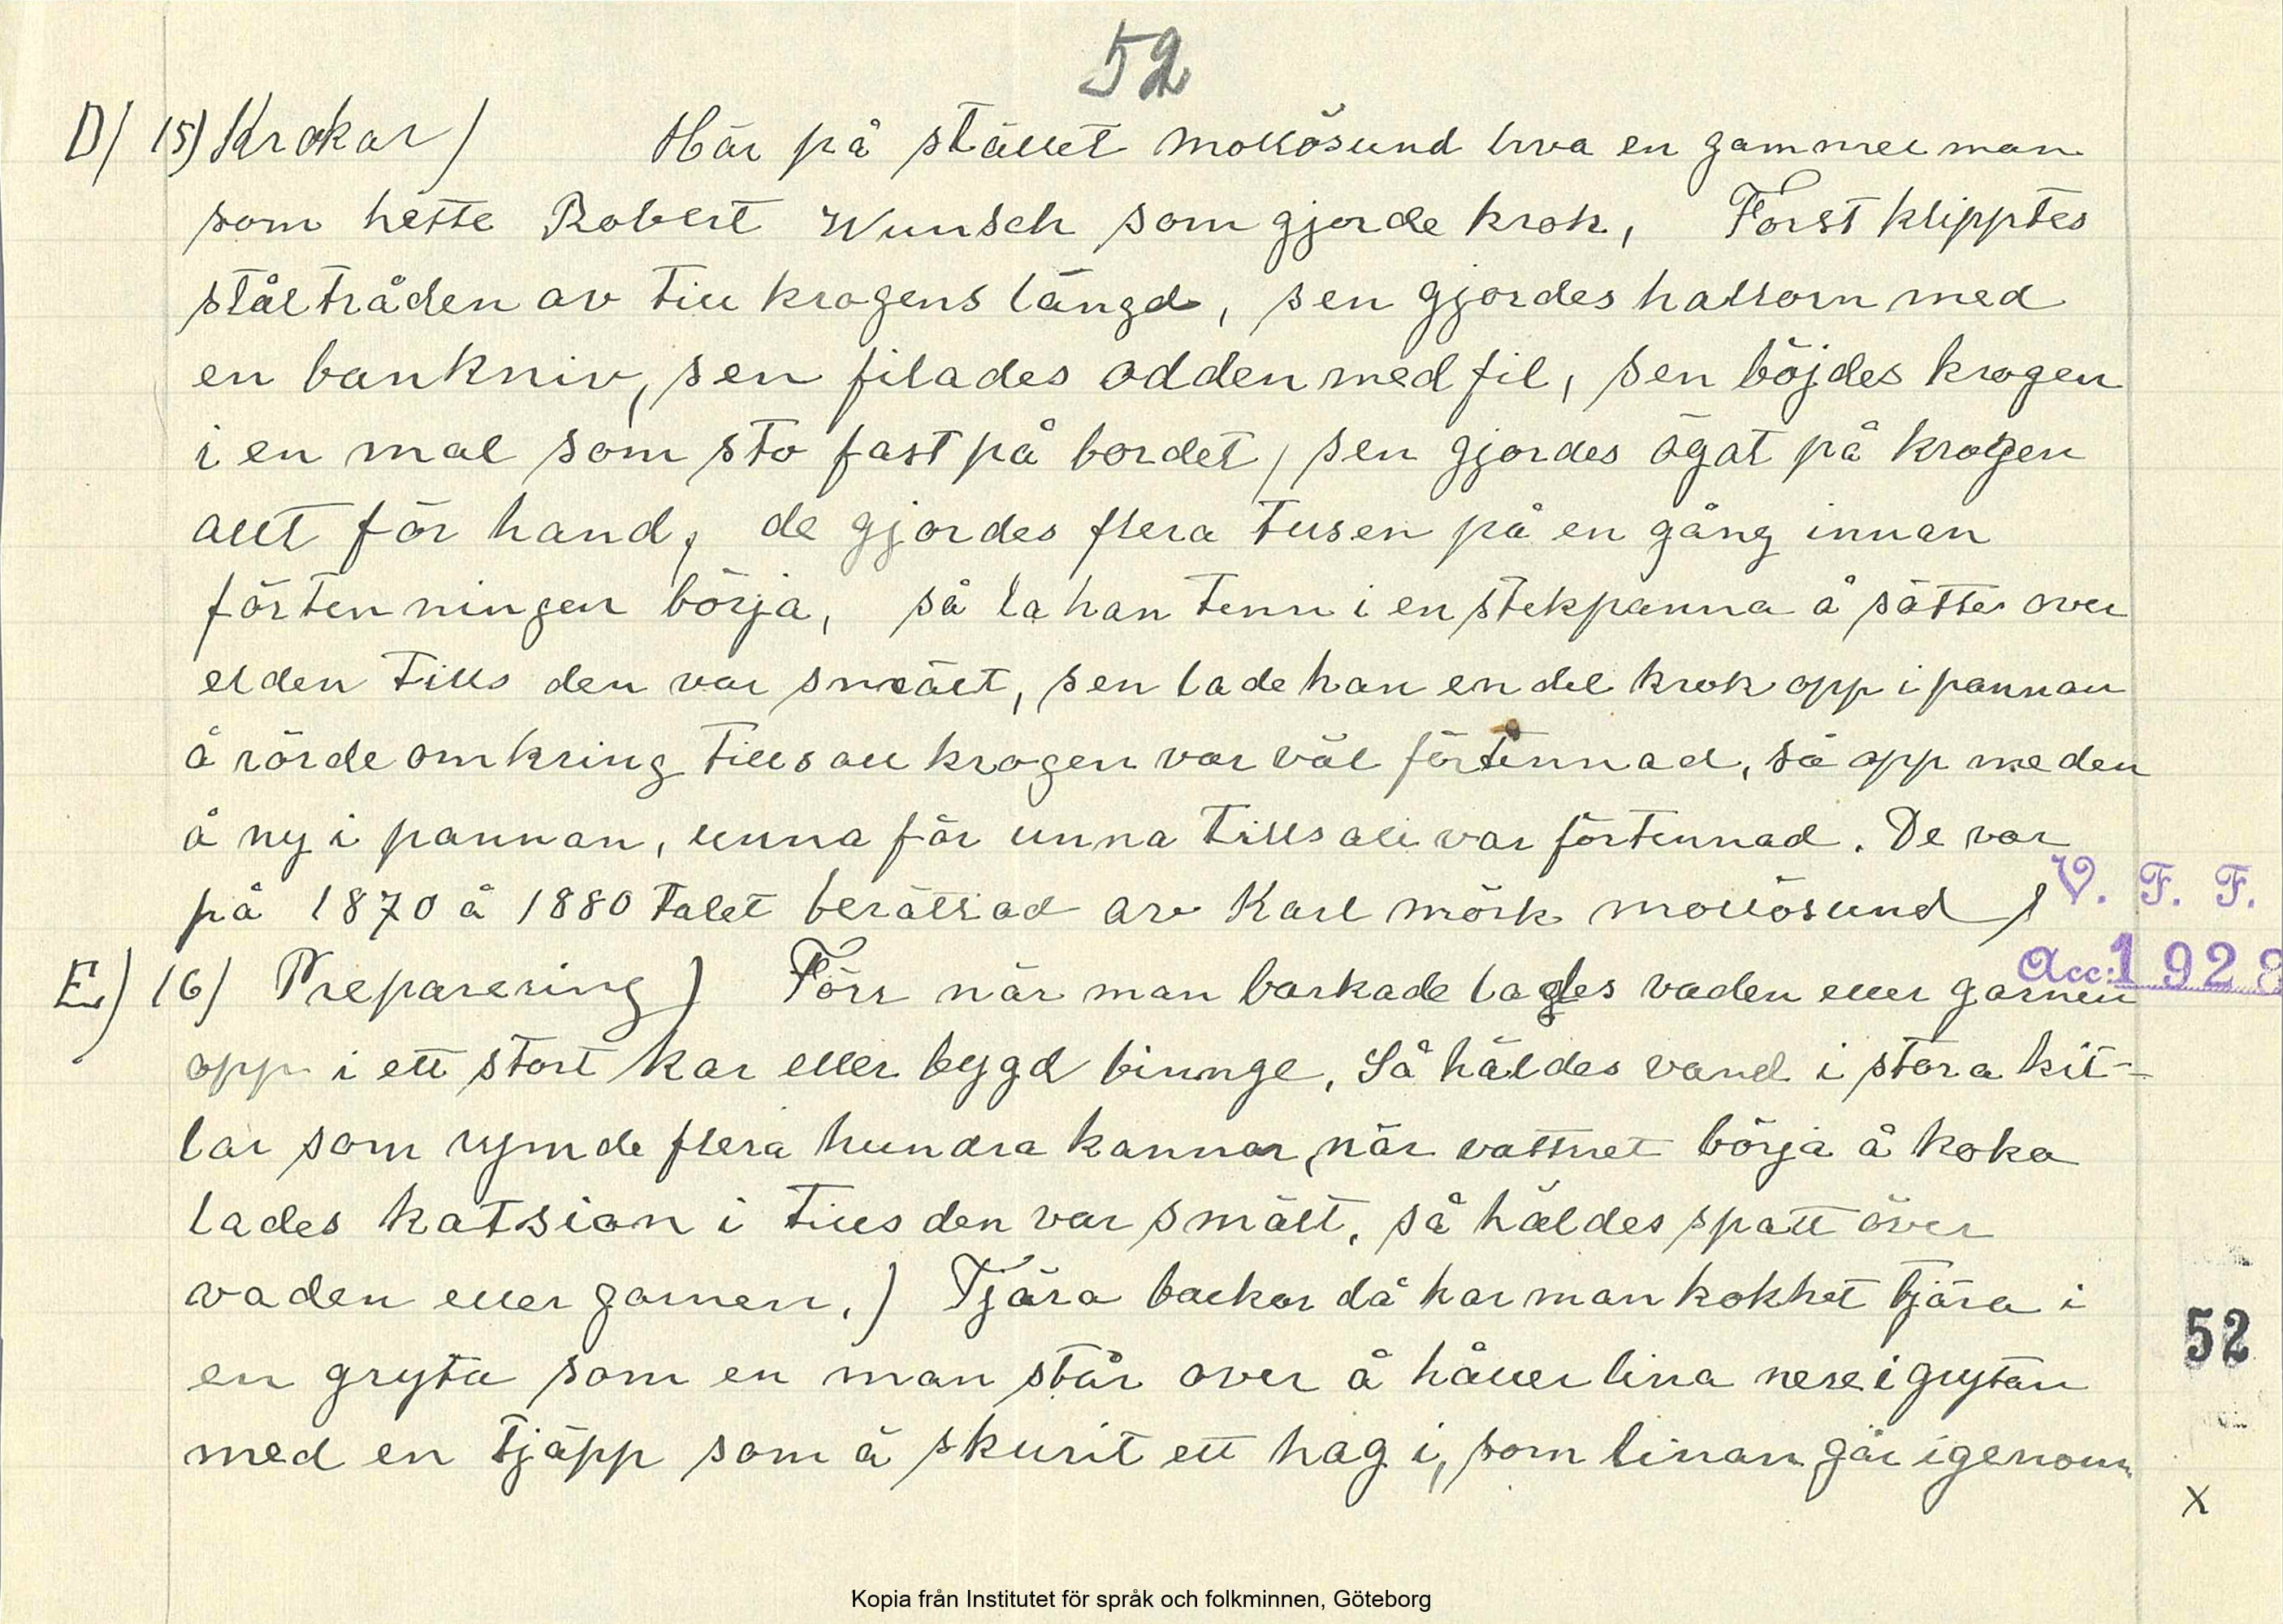 52
D/ 15) Krokar) Här på stället mollösund bva en gammel man
som hette Robert Wunsch som gjorde krok, Först klipptes
ståltråden av till krogens längd, sen gjordes hallorn med
en bankniv, sen filades odden med fil, sen böjdes krogen
i en mal som sto fast på bordet, sen gjordes ögat på krogen
allt för hand, de gjordes flera tusen på en gång innan
förtenningen börja, så la han tenn i en stekpanna å sätter over
elden tills den var smält, sen lade han en del krok opp i pannan
å rörde omkring tills all krogen var väl förtennad, så opp me den
å ny i pannan, unna för unna tills all var förtennad. De var
på 1870 å 1880 talet berättad av Karl mörk mollösund)
V. F. F.
Acc: 1928
E) 16) Preparering) Förr när man barkade lades vaden eller garnen
opp i ett stort kar eller bygd binnge, Så häldes vand i stora kit-
lar som rymde flera hundra kannor, när vattnet börja å koka
lades katsion i tills den var smält, så häldes spatt över
vaden eller garnen.) Tjära backor då har man kokhet tjära i
en gryta som en man står over å håller lina nere i grytan
med en tjäpp som ä skurit ett hag i, som linan går igenom
52
x
Kopia från Institutet för språk och folkminnen, Göteborg